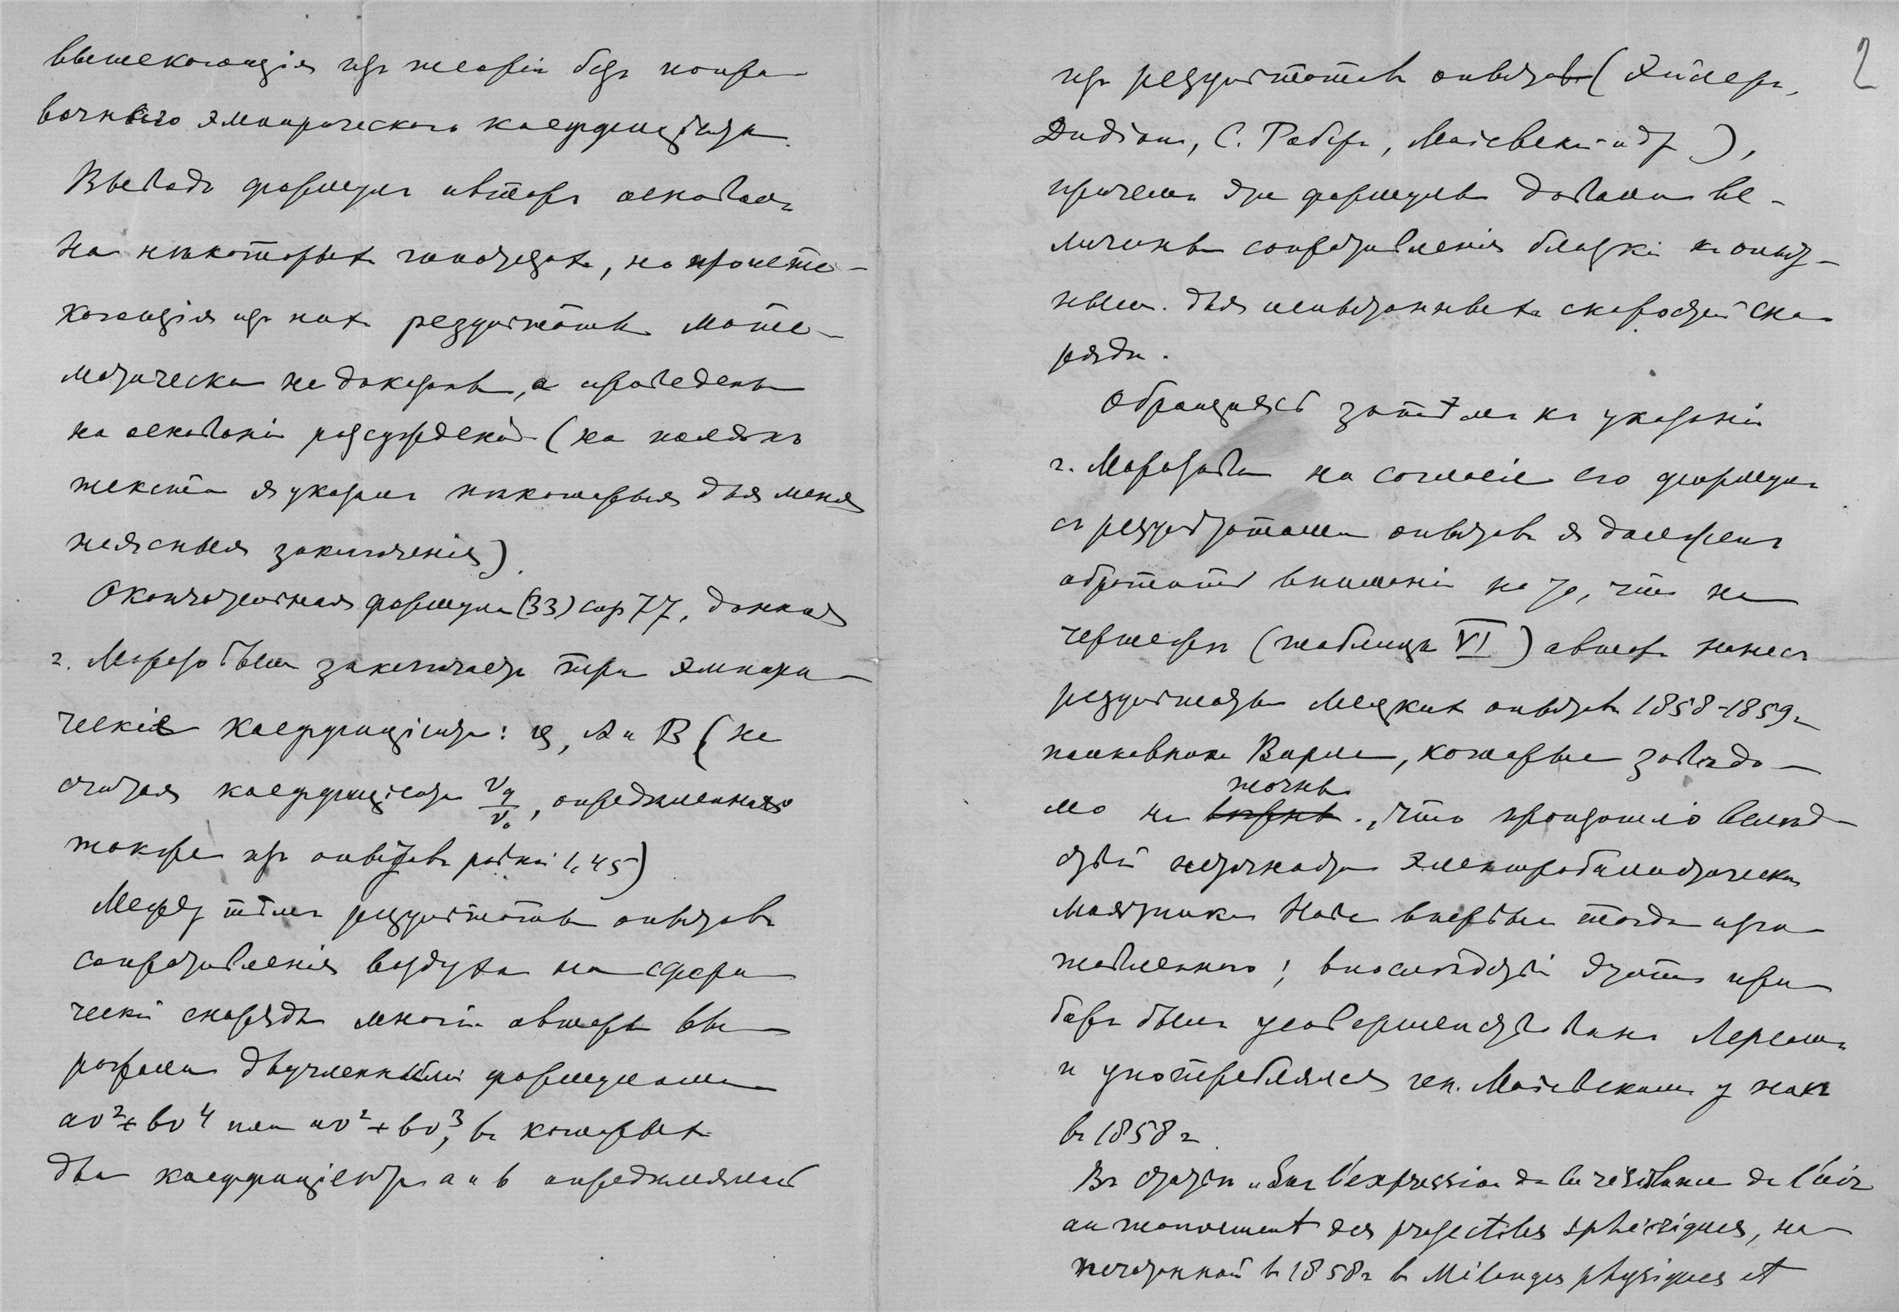 вытекающія изъ теоріи безъ попра-
вочнаго эмпирическаго коеффиціента.
Выводъ формулъ авторъ основалъ
на нѣкоторыхъ гипотезахъ, но проистѣ-
кающія изъ нихъ результаты мате-
матически не доказаны, а проведены
на основаніи разсужденій (на поляхъ
текста я указалъ нѣкоторыя для меня
неясныя заключенія).
Окончательная формула (33) стр 77, данная
г. Морозовымъ заключаетъ три эмпири-
ческіе коеффиціента: q, A и B (не
считая коеффиціента v_q/v_0, опредѣленнаго
также изъ опытовъ равный 1,45)
Между тѣмъ результаты опытовъ
сопротивленія воздуха на сфери-
ческій снарядъ многіе авторы вы-
ражали двучленными формулами
av²+bv⁴ или av²+bv³, въ которыхъ
два коеффиціента a и b опредѣлялись
2
изъ результатовъ опытовъ (Эйлеръ,
Дидіонъ, С. Роберъ, Маіевскій и др),
причемъ эти формулы давали ве-
личины сопротивленія близкія къ опыт-
нымъ для испытанныхъ скоростей сна-
ряда.
Обращаясь затѣмъ къ указанію
г. Морозова на согласіе его формулъ
съ результатами опытовъ я долженъ
обратить вниманіе на то, что на
чертежѣ (таблица VI) авторъ нанесъ
результаты Мецкихъ опытовъ 1858-1859г
полковника Вирле, которые завѣдо-
мо не точны
вѣрны. что произошло вслѣд-
ствіе неточности электробаллистическаго
маятника Наве впервые тогда изго-
товленнаго; впослѣдствіи этотъ при-
боръ былъ усовершенствованъ Леруа
и употреблялся ген. Маіевскимъ у насъ
въ 1858 г.
Въ статьѣ „Sur l'expression de la résistance de l'air
au mouvement des projectiles sphériques, на-
печатанной въ 1858г въ Mélanges physiques et